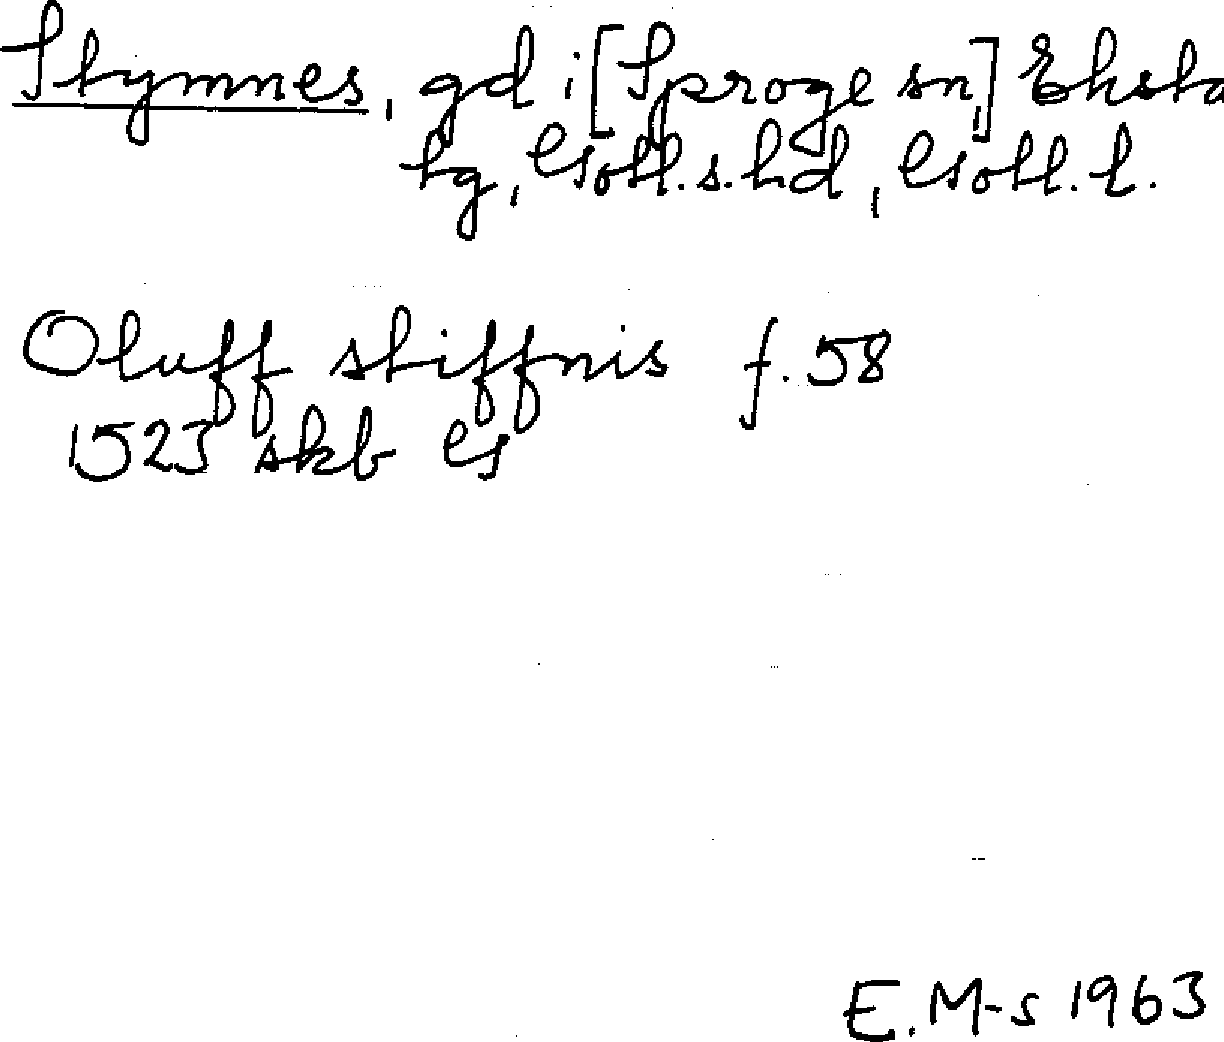 Stymnes, gd i [Sproge sn,] Eksta
tg, Gotl. s. hd, Gotl. l.
Oluff stiffnis f. 58
1523 skb G
E. M-s 1963